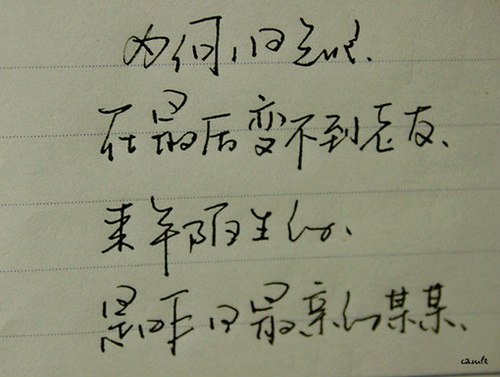 为何旧知己、
在最后变不到老友、
来年陌生的、
是昨日最亲的某某、